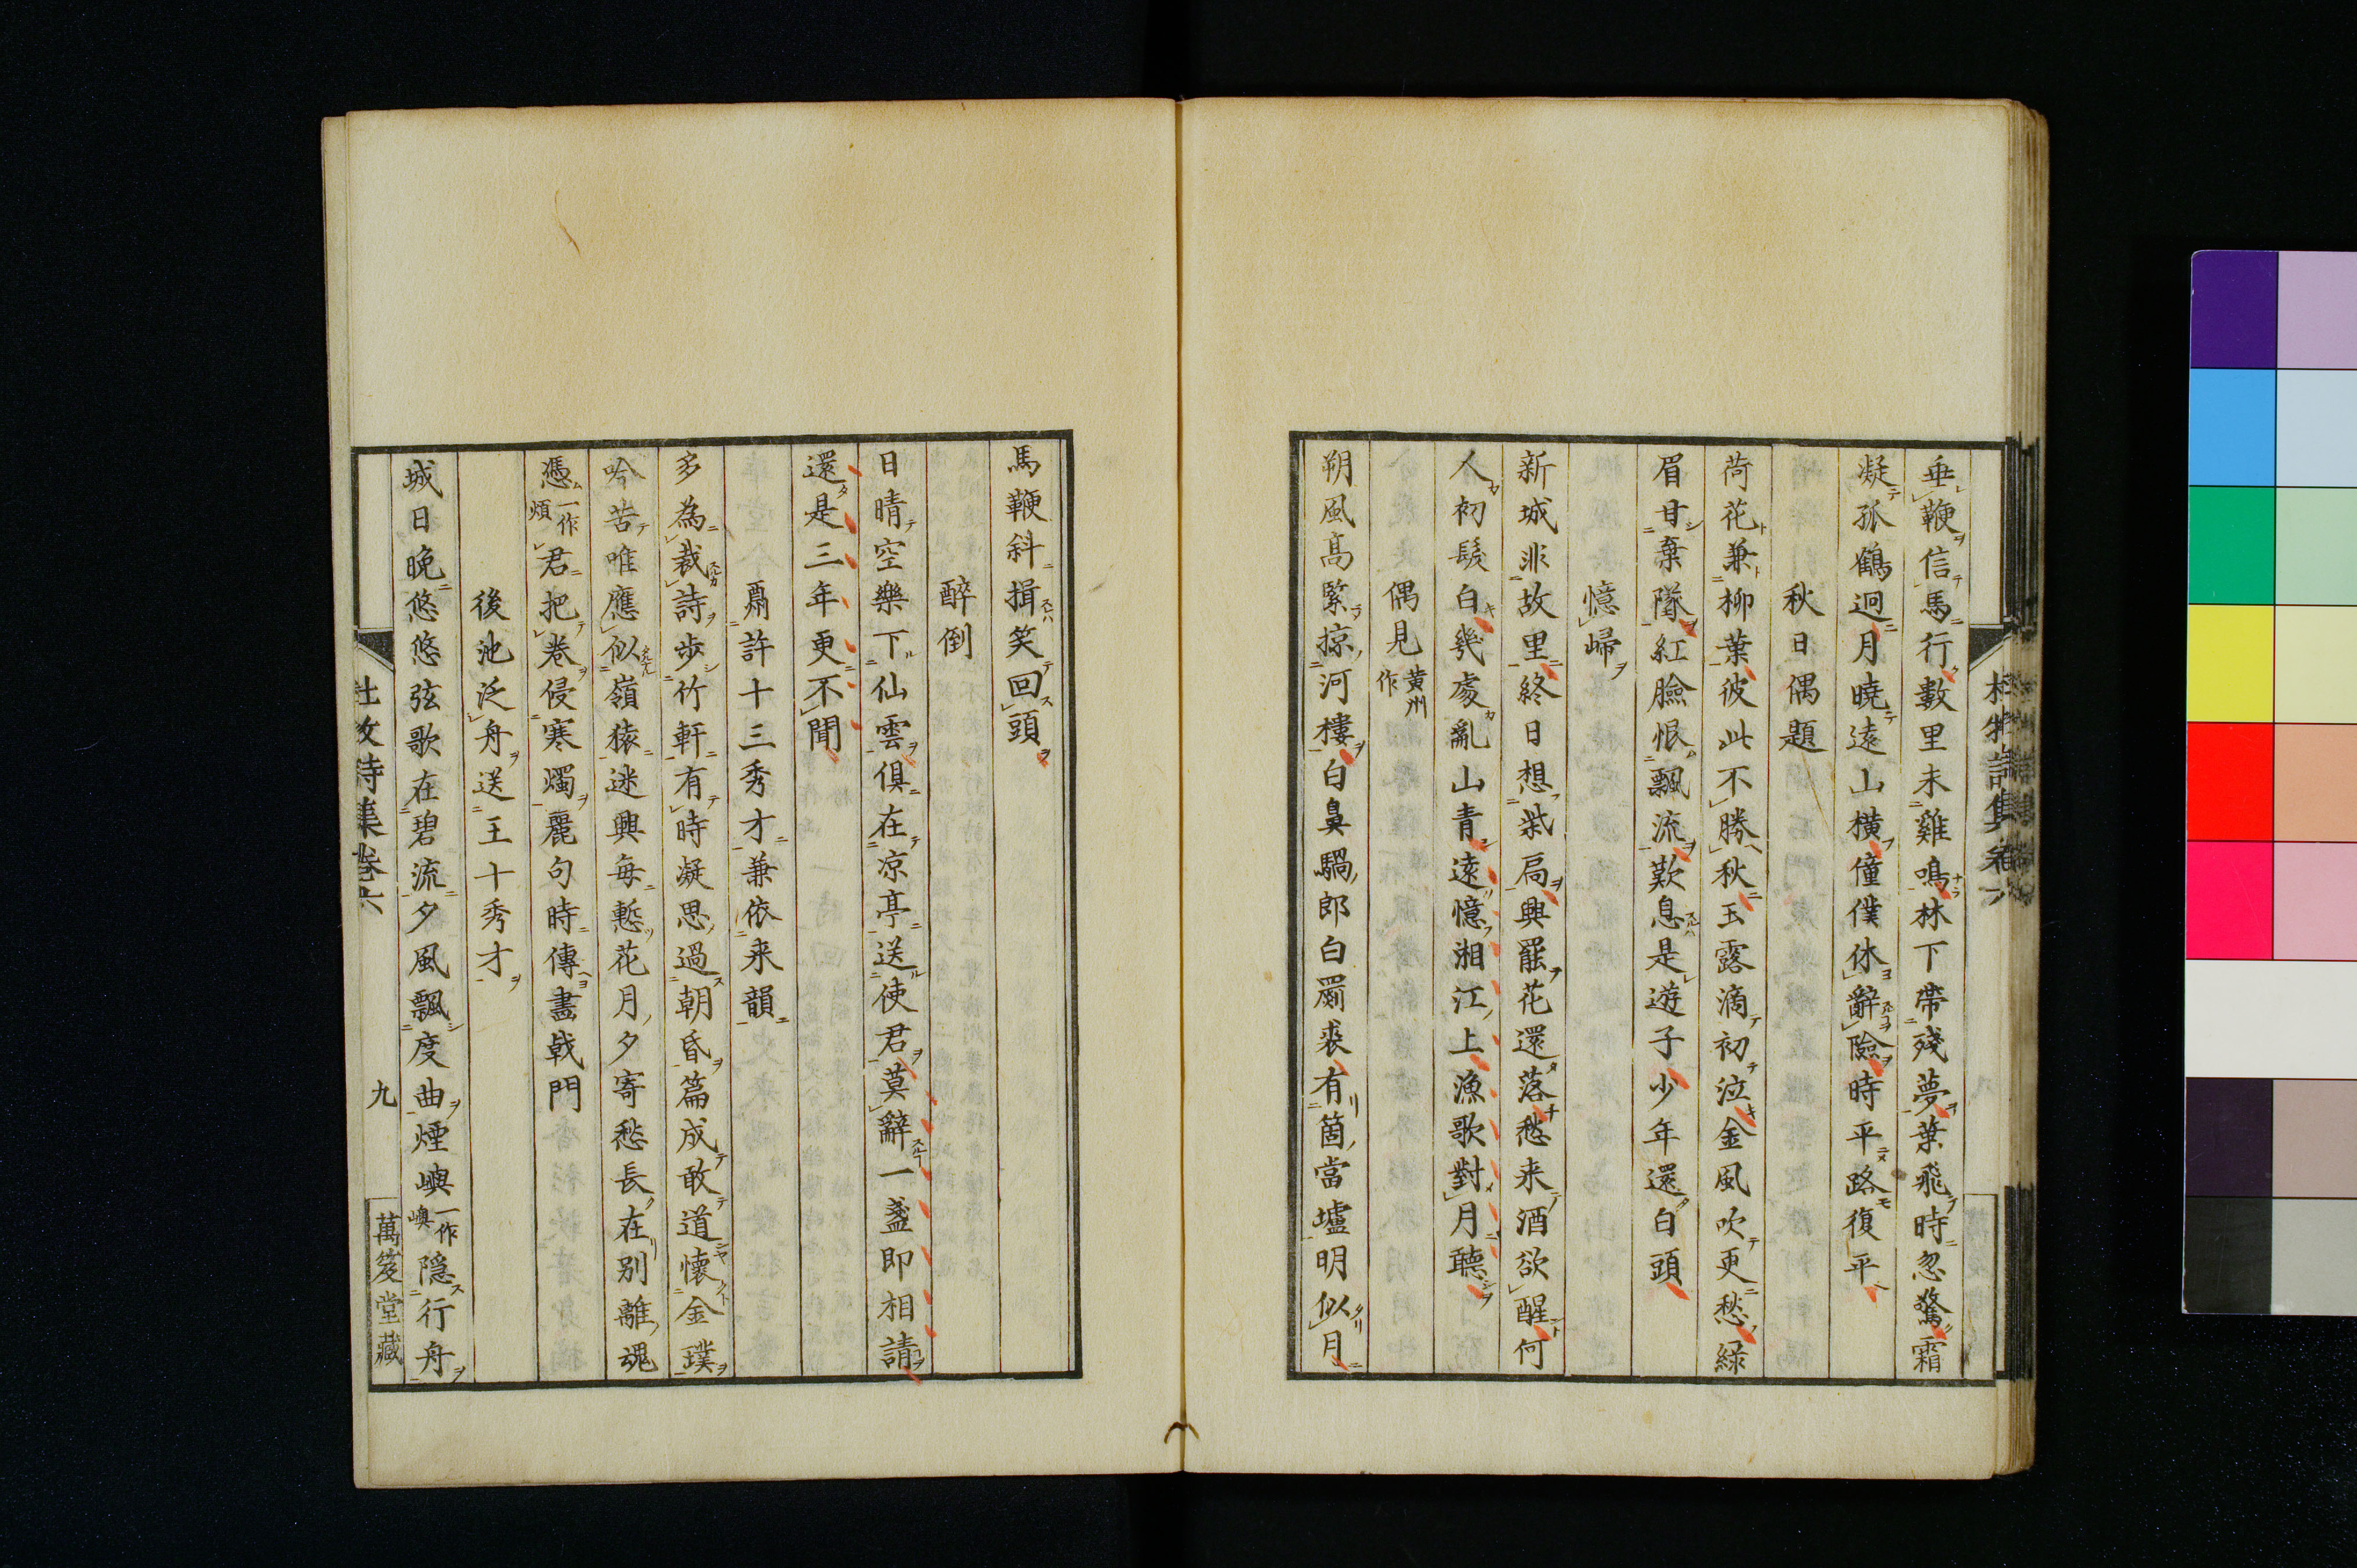 垂鞭信馬行數里未雞鳴林下帶殘夢葉飛時忽驚霜
凝孤鶴迥月曉遠山橫僮僕休辭險時平路復平
秋日偶題
荷花兼柳葉彼此不勝秋玉露滴初泣金風吹更愁綠
眉甘棄墜紅臉恨飄流歎息是遊子少年還白頭
憶歸
新城非故里終日想柴扃興罷花還落愁来酒欲醒何
人初髮白幾處亂山青遠憶湘江上漁歌對月聽
偶見黃州作
朔風高緊掠河樓白鼻騧郎白罽裘有箇當壚明似月
馬鞭斜揖笑回頭
醉倒
日晴空樂下仙雲俱在凉亭送使君莫辭一盞即相請
還是三年更不聞
酬許十三秀才兼依来韻
多為裁詩步竹軒有時凝思過朝昏篇成敢道懷金璞
吟苦唯應似嶺猿迷興每慙花月夕寄愁長在别離魂
憑一作煩君把卷侵寒燭麗句時傳畫戟門
後池泛舟送王十秀才
城日晚悠悠弦歌在碧流夕風飄度曲煙嶼一作㠗隱行舟
杜牧詩集卷六
九
萬笈堂藏